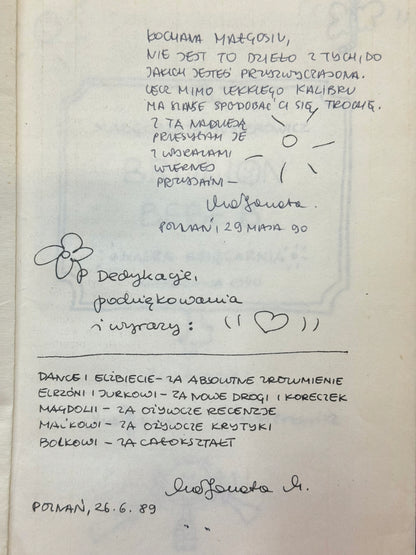 KOCHANA MAŁGOSIU,
NIE JEST TO DZIEŁO Z TYCH, DO
JAKICH JESTEŚ PRZYZWYCZAJONA.
LECZ MIMO LEKKIEGO KALIBRU
MA SZANSĘ SPODOBAĆ CI SIĘ TROCHĘ.
Z TĄ NADZIEJĄ
PRZESYŁAM JE
Z WYRAZAMI
WIERNEJ
PRZYJAŹNI –
Małgorzata.
POZNAŃ, 29 MAJA 90
Dedykacje,
podziękowania
i wyrazy:
DANCE I ELŻBIECIE – ZA ABSOLUTNE ZROZUMIENIE
ELŻUNI I JURKOWI – ZA NOWE DROGI I KORECZEK
MAGDUSI – ZA OŻYWCZE RECENZJE
MAĆKOWI – ZA OŻYWCZE KRYTYKI
BOLKOWI – ZA CAŁOKSZTAŁT
Małgorzata M.
POZNAŃ, 26.6.89